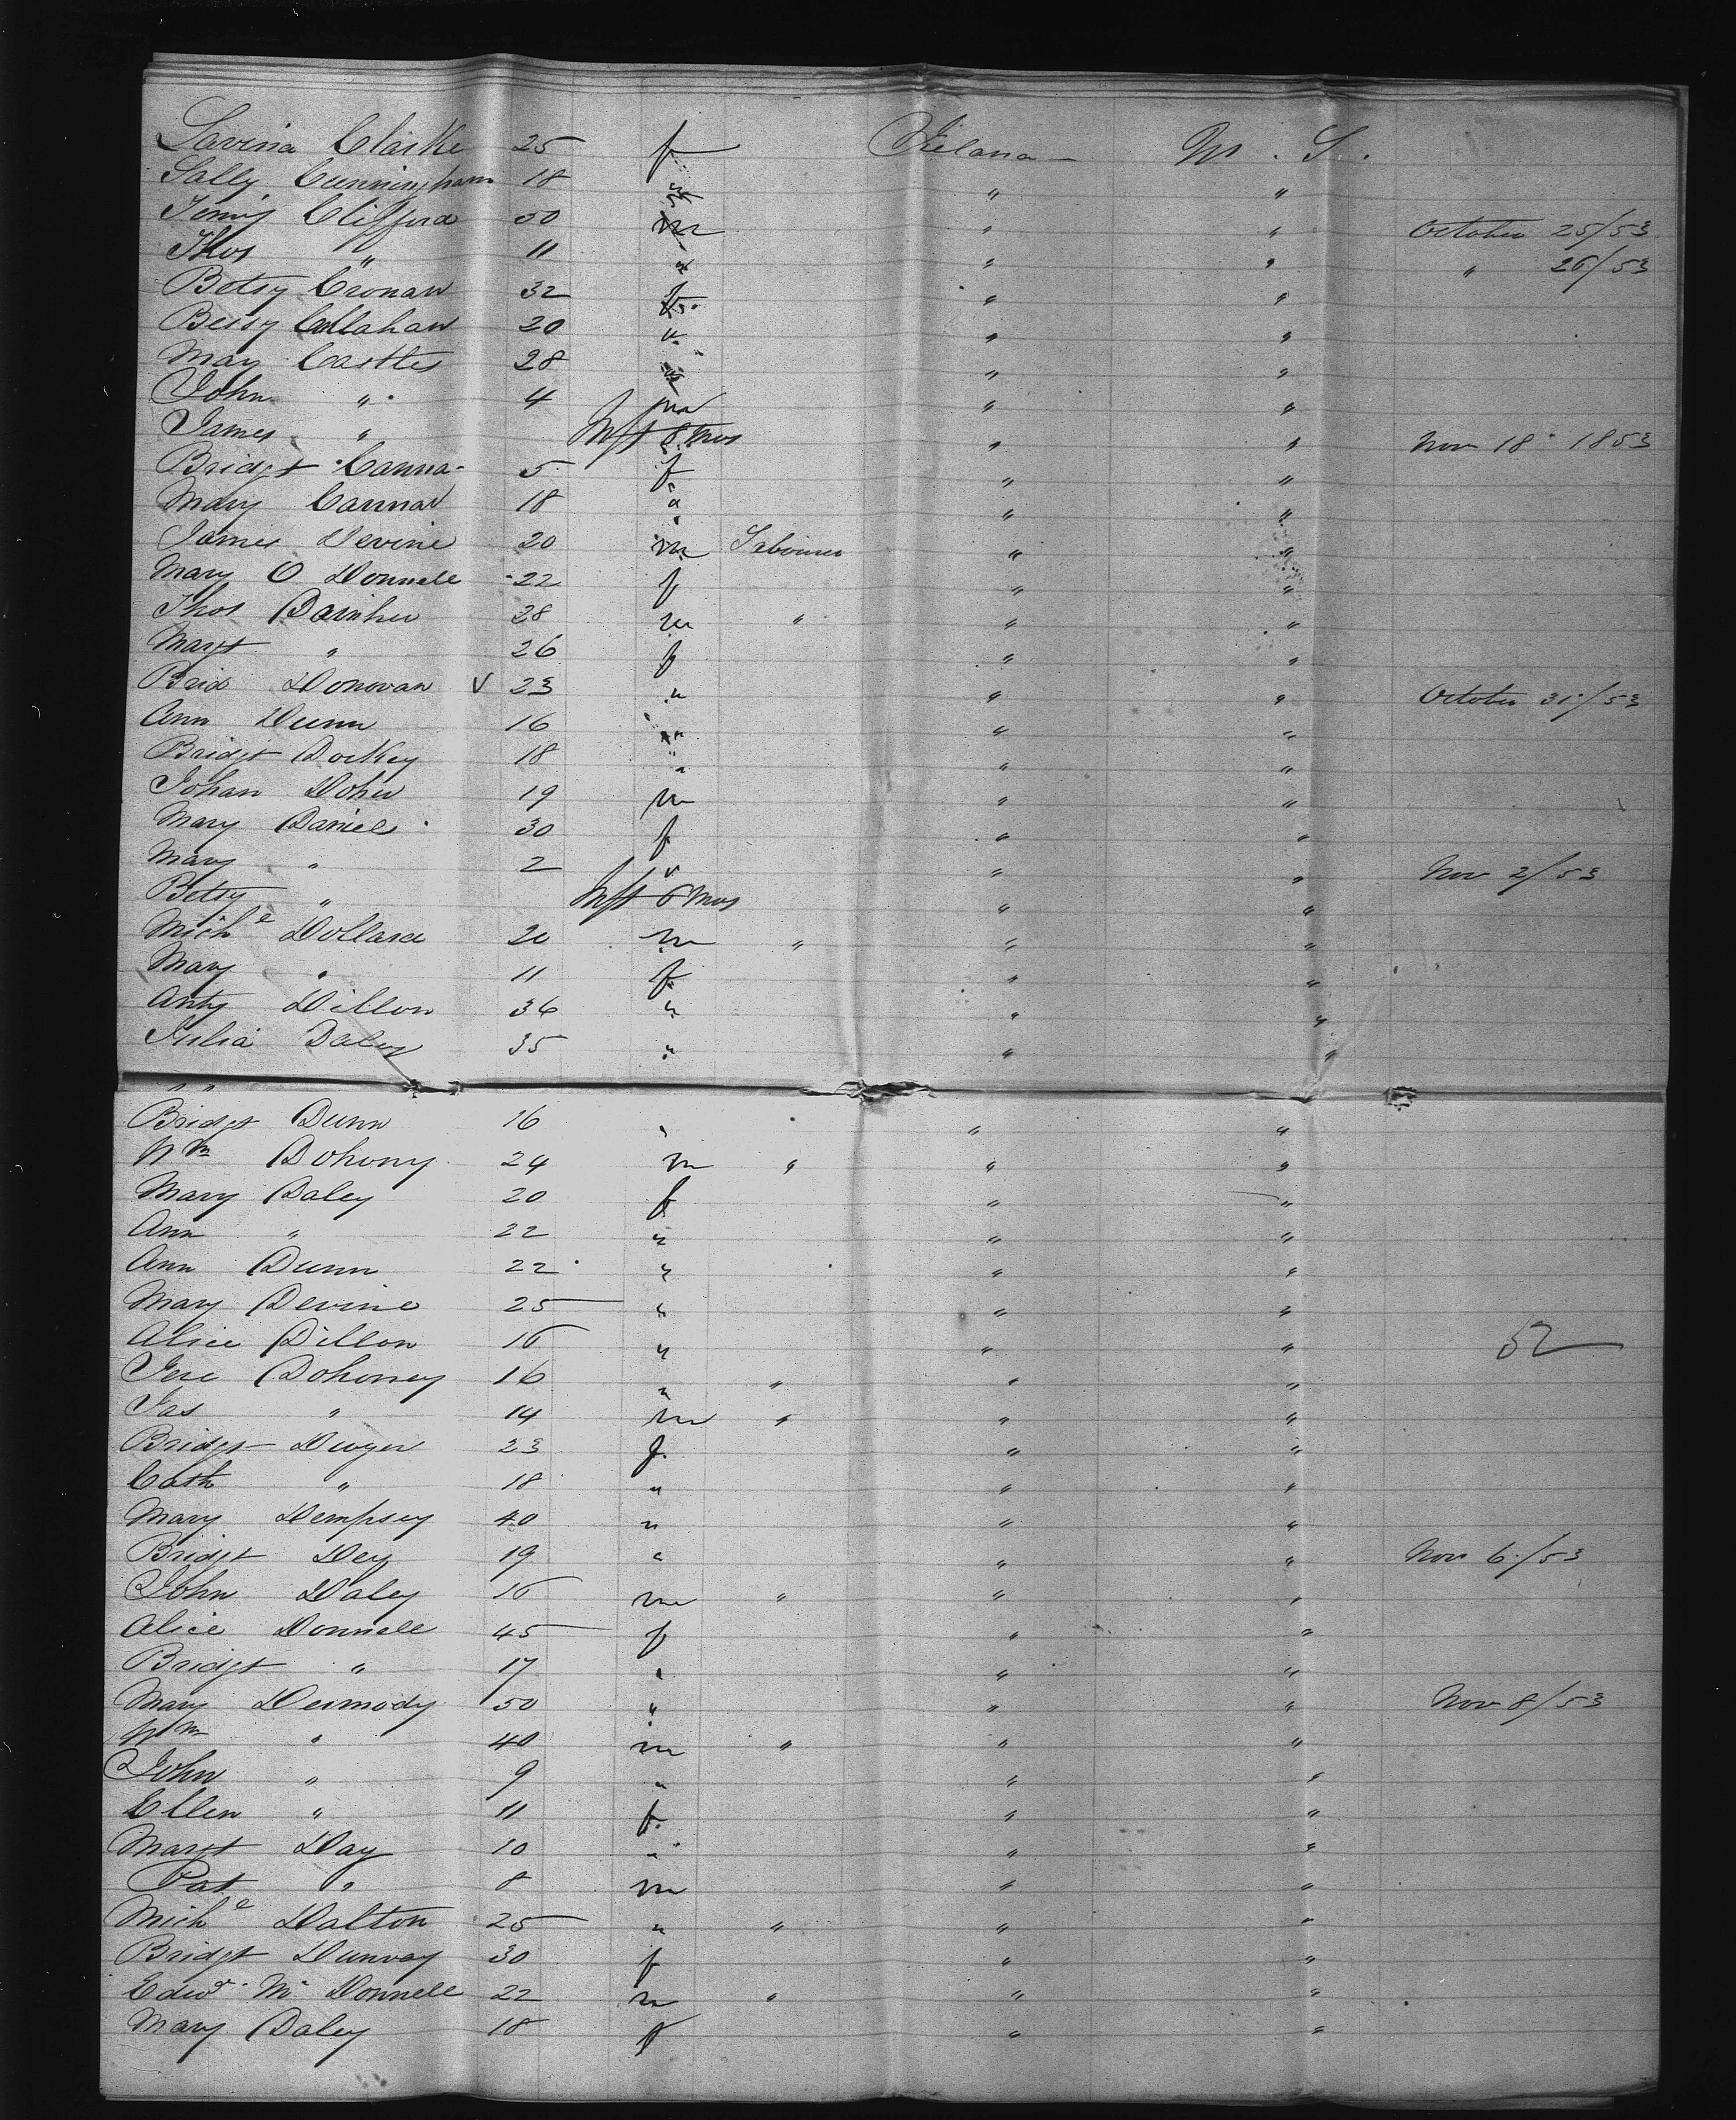 Lavinia Clarke 25 f Ireland U. S.
Sally Cunningham 18 " " "
Jenny Clifford 50 m " " October 25/53
Thos " 11 " " " " 26/53
Betsy Cronan 32 f " "
Bessy Callahan 20 " " "
Mary Castles 28 " " "
John " 4 m " "
James " Inft 8 mos " " Nov 18 1853
Bridget Canna 5 f " "
Mary Canna 18 " " "
James Devine 20 m Labourer " "
Mary O Donnell 22 f " "
Thos 28 m " " "
Margt " 26 f " "
Brid Donovan V 23 " " " October 31/53
Ann Dunn 16 " " "
Bridgt Dorkey 18 " " "
Johan 19 m " "
Mary Daniel 30 f " "
Mary " 2 " " " Nov 2/53
Betsy " Inft 6 mos " "
Miche Dollard 20 m " " "
Mary " 11 f " "
Anty Dillon 36 " " "
Julia Daley 35 " " "
" "
Bridgt Dunn 16 " " "
Wm Dohony 24 m " " "
Mary Daley 20 f " "
Ann " 22 " " "
Ann Dunn 22 " " "
Mary Devine 25 " " "
Alice Dillon 16 " " " 52
Jere Dohoney 16 " " " "
Jas " 14 m " " "
Bridgt Dwyer 23 f " "
Cath " 18 " " "
Mary Dempsey 40 " " "
Bridgt Dey 19 " " " Nov 6/53
John Daley 16 m " " "
Alice Donnell 45 f " "
Bridgt " 17 " " "
Mary Dermody 50 " " " Nov 8/53
Wm " 40 m " " "
John " 9 " " "
Ellen " 11 f " "
Margt Day 10 " " "
Pat " 8 m " "
Miche Dalton 25 " " " "
Bridgt Dunvay 30 f " "
Edwd Mc Donnell 22 m " " "
Mary Daley 18 f " "